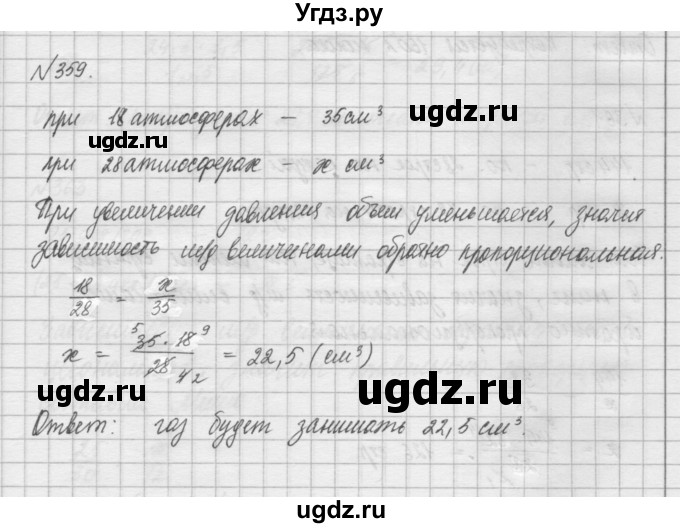 Угдз.ру
№359.
при 18 атмосферах – 35 см³
ugdz.ru ugdz.ru
при 28 атмосферах – x см³
При увеличении давления объем уменьшается, значит
зависимость м/д величинами обратно пропорциональная.
ugdz.ru
18/28 = x/35
x = 35·18/28 = 22,5 (см³)
5 9
4 2
ugdz.ru ugdz.ru
Ответ: газ будет занимать 22,5 см³.
ugdz.ru
ugdz.ru